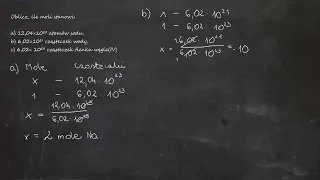 Oblicz, ile moli stanowi:
a) 12,04·10²³ atomów sodu,
b) 6,02·10²¹ cząsteczek wody,
c) 6,02· 10²⁴ cząsteczek tlenku węgla(IV)
a) Mole Cząsteczki
x - 12,04·10²³
1 - 6,02·10²³
x = 12,04·10²³ / 6,02·10²³
x = 2 mole Na
b) x - 6,02·10²¹
1 - 6,02·10²³
x = 6,02·10²¹ / 6,02·10²³ = 10